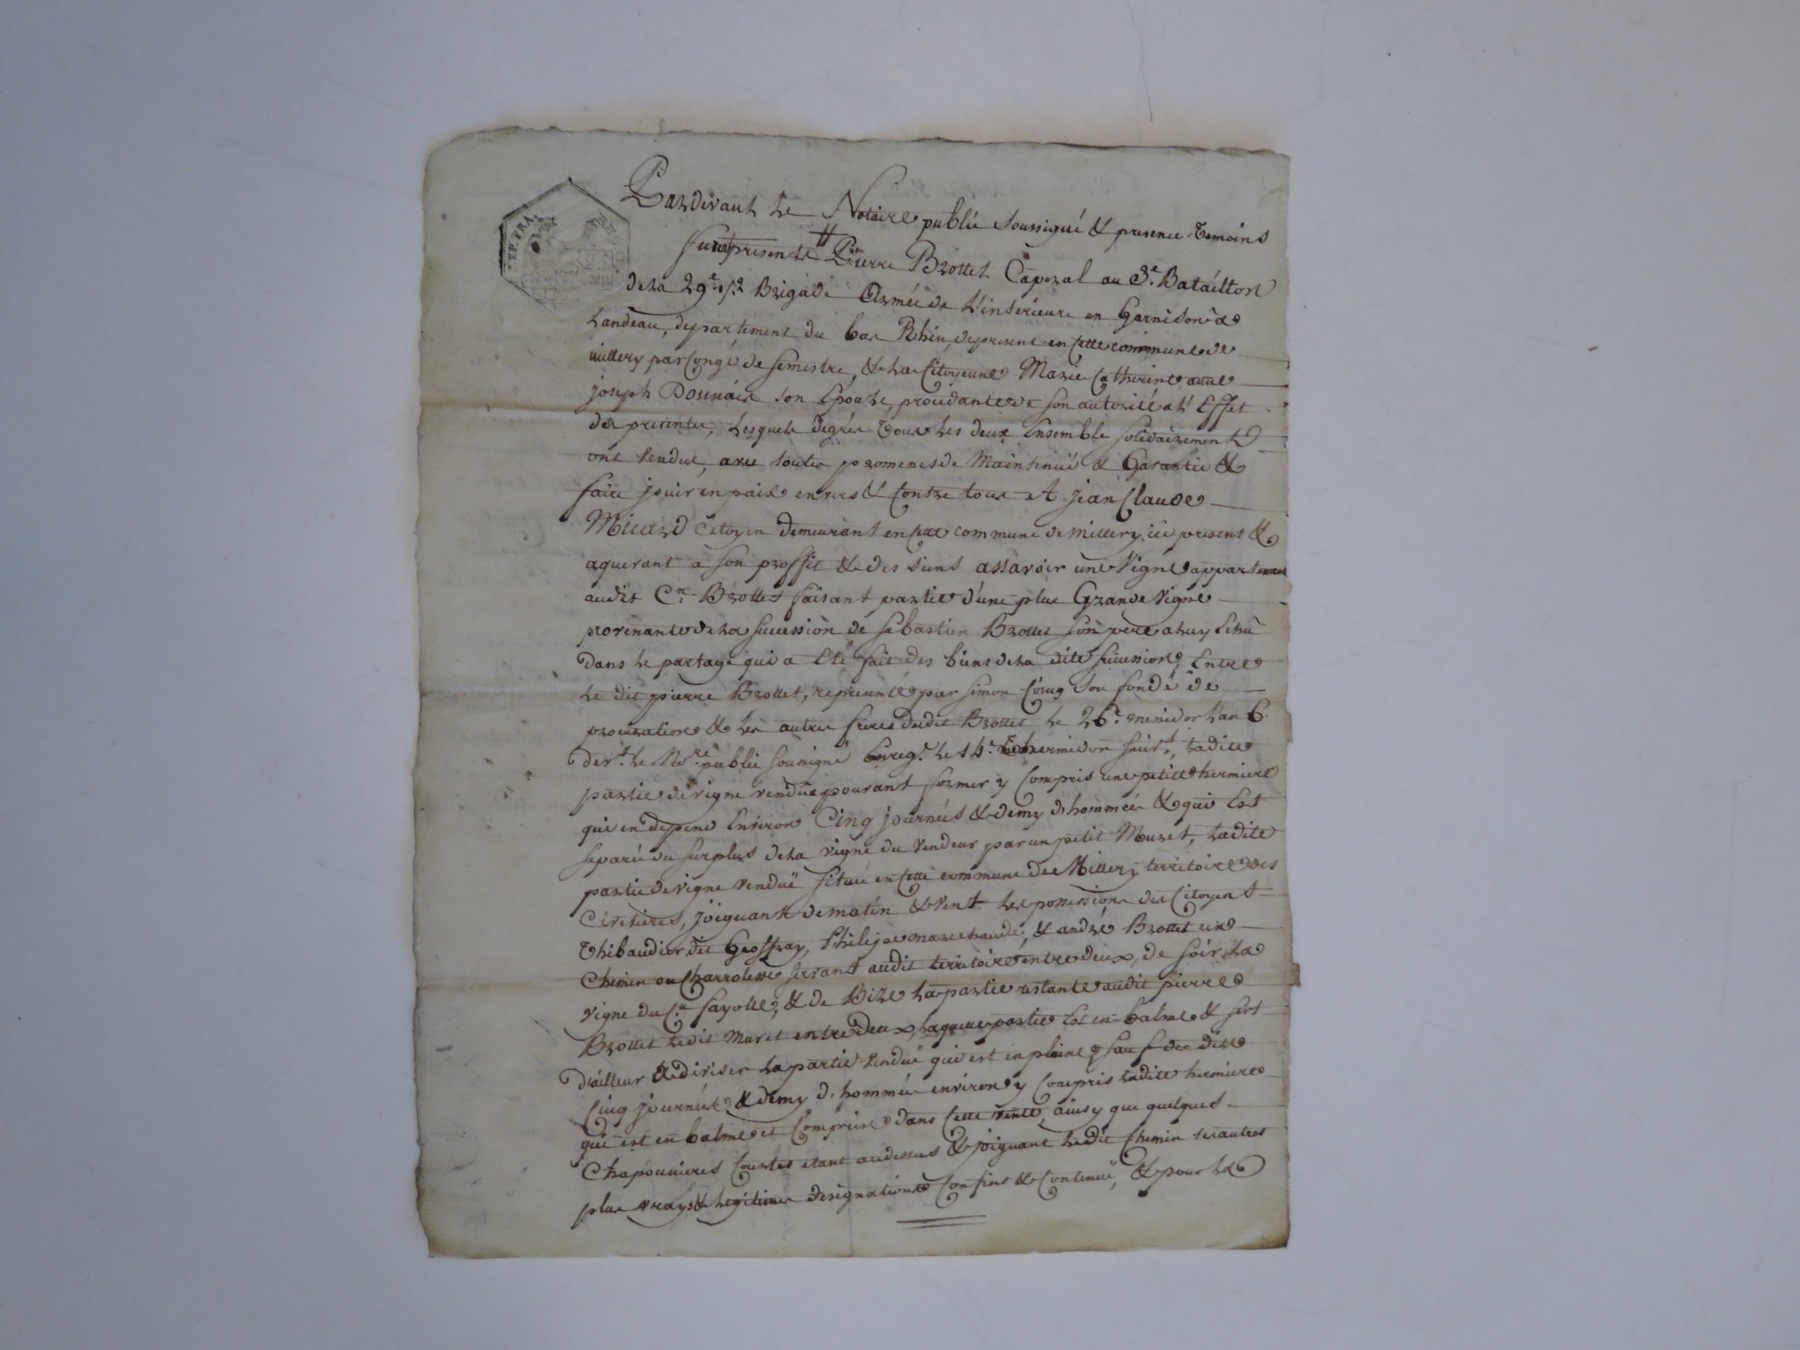 REP. FRA.
Pardevant Le Notaire public Soussigné & presence Temoins
furent presents Pierre Brottet Caporal au 3e. Bataillon
de La 29e. 1/2 Brigade Armée de L'intérieure en Garnison a
Landeau, departement du bas Rhin, de present en cette commune de
millery par Congé de semestre, & La Citoyenne Marie Catherine
joseph Donnair son Epouze, procedante de son autorité a L'Effet
des presentes, Lesquels degrés Tous Les deux Ensemble solidairement
ont Vendue, avec toutes promesses de Maintenüe & Garantie &
faire jouir en paix envers & Contre tous A jean Claude
Micard Citoyen demeurant en cette commune de millery, ici present &
aquerant a son proffit & des siens assavoir une Vigne appartenant
audit Cn. Brottet faisant partie d'une plus Grande Vigne
provenante de La succession de sebastien Brottet son pere a luy Echu
dans Le partage qui a Eté fait des biens de La dite succession, Entre
Le dit pierre Brottet, representé par simon son fondé de
procuration & Les autres freres dudit Brottet Le 26e. messidor L'an 6
devt. Le Nre. public soussigné Enregé. Le 14e. thermidor suivt, Ladite
partie de vigne vendüe pouvant former y Compris une petite hermiere
qui en depend Environ Cinq journés & demy d'hommées & qui Est
separé du surplus de La vigne du Vendeur par un petit Muret, Ladite
partie de vigne vendüe située en cette commune de Millery territoire des
joignant de matin & Vent Les possessions des Citoyens
Thibaudier dit Geoffray, Philipe marechaude, & andré Brottet un
Chemin ou Charroliere servant audit territoire entre deux, de soir La
Vigne du Cn. fayolle, & de Bize La partie restante audit pierre
Brottet Ledit Muret entre deux, Laquelle partie Est en balme & sert
d'ailleur a diviser La partie Vendüe qui est en plaine, sauf des dites
Cinq journées & demy d'hommées environ y Compris Ladite hermiere
qui est en balme et Comprise dans Cette Vente, ainsy que quelques
Chaponnieres Courtes etant audessus & joignant Ledit Chemin ses autres
plus vrays & Legitimes designations Confins & Contenüe, & pour Le